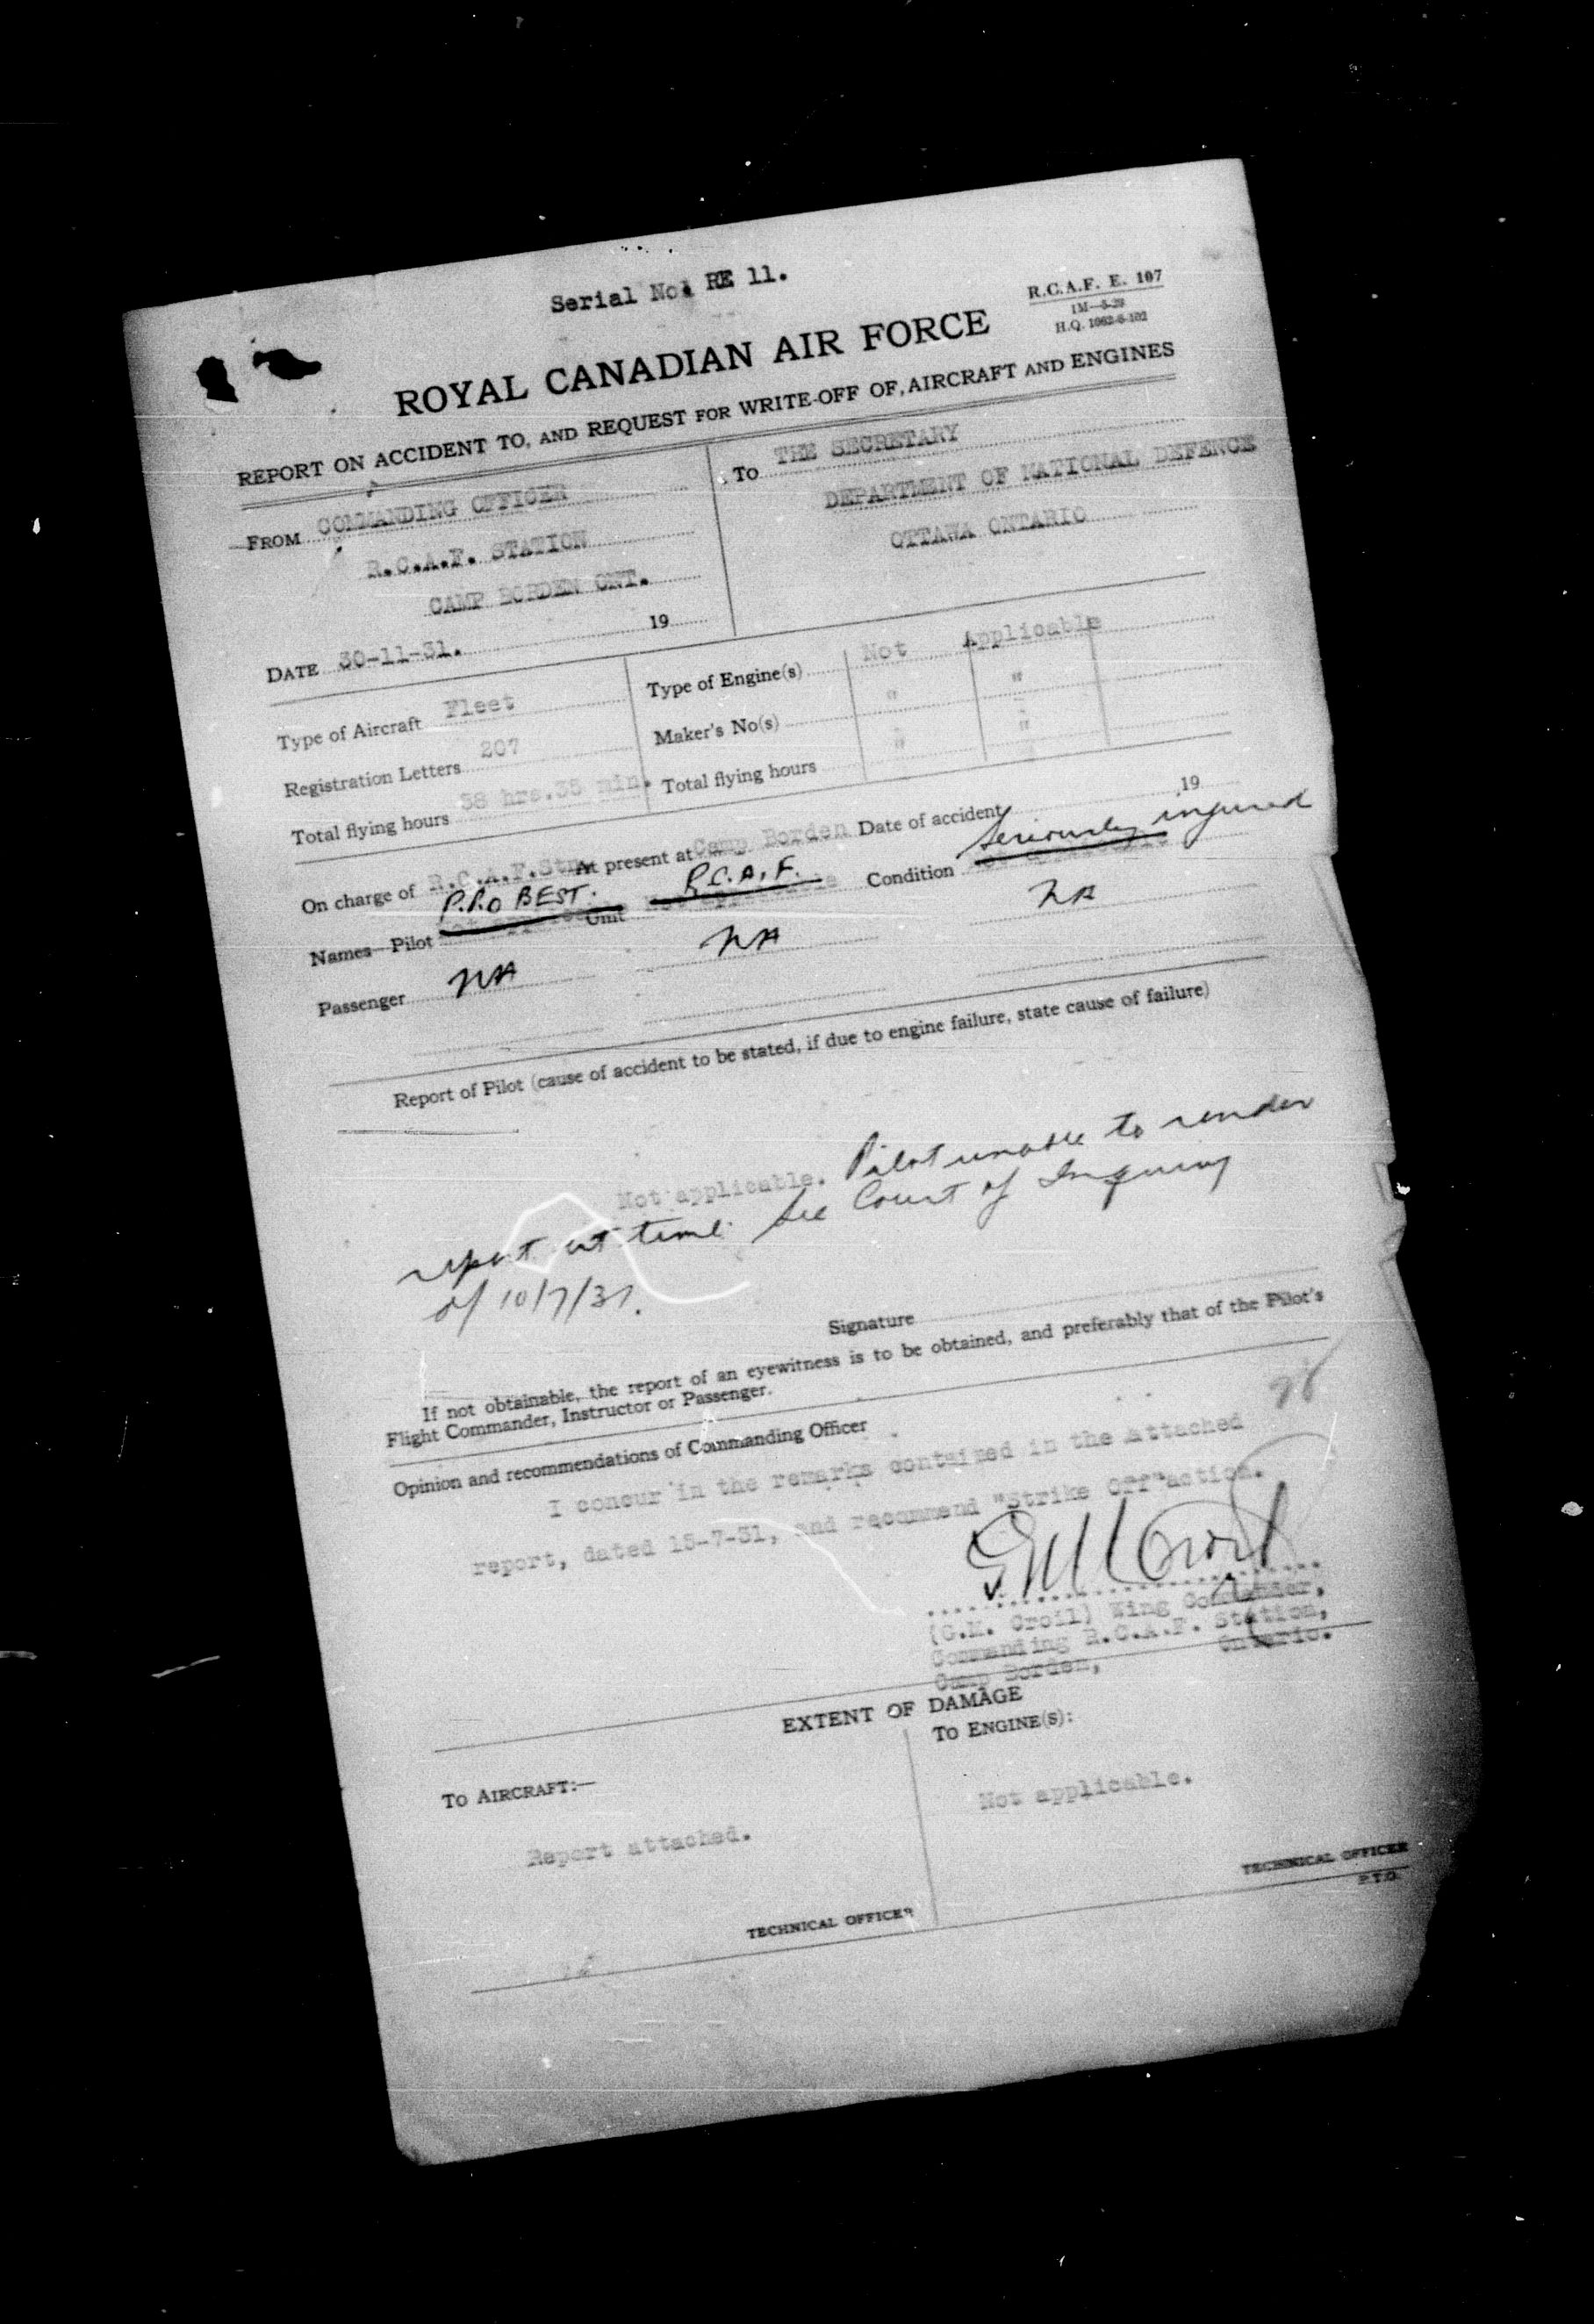 Serial No. RE 11.
R.C.A.F. E. 107
1M—5-29
H.Q. 1062-6-102
ROYAL CANADIAN AIR FORCE
REPORT ON ACCIDENT TO, AND REQUEST FOR WRITE-OFF OF, AIRCRAFT AND ENGINES
FROM COMMANDING OFFICER
R.C.A.F. STATION
CAMP BORDEN ONT.
DATE 30-11-31. 19
To THE SECRETARY
DEPARTMENT OF NATIONAL DEFENCE
OTTAWA ONTARIO
Type of Aircraft Fleet
Registration Letters 207
Total flying hours 38 hrs.35 min.
Type of Engine(s) Not Applicable
Maker's No(s) " "
Total flying hours " "
On charge of R.C.A.F.Stn. At present at Camp Borden Date of accident ,19
Names—Pilot P.P.O BEST. Unit R.C.A.F. Condition Seriously injured
Passenger NA NA NA
Report of Pilot (cause of accident to be stated, if due to engine failure, state cause of failure)
Not applicable. Pilot unable to render
report at time. See Court of Inquiry
of 10/7/31.
Signature
If not obtainable, the report of an eyewitness is to be obtained, and preferably that of the Pilot's
Flight Commander, Instructor or Passenger.
Opinion and recommendations of Commanding Officer
I concur in the remarks contained in the attached
report, dated 15-7-31, and recommend "Strike Off" action.
(G.M. Croil) Wing Commander,
Commanding R.C.A.F. Station,
Camp Borden, Ontario.
EXTENT OF DAMAGE
To AIRCRAFT:—
Report attached.
TECHNICAL OFFICER
To ENGINE(S):
Not applicable.
TECHNICAL OFFICER
P.T.O.